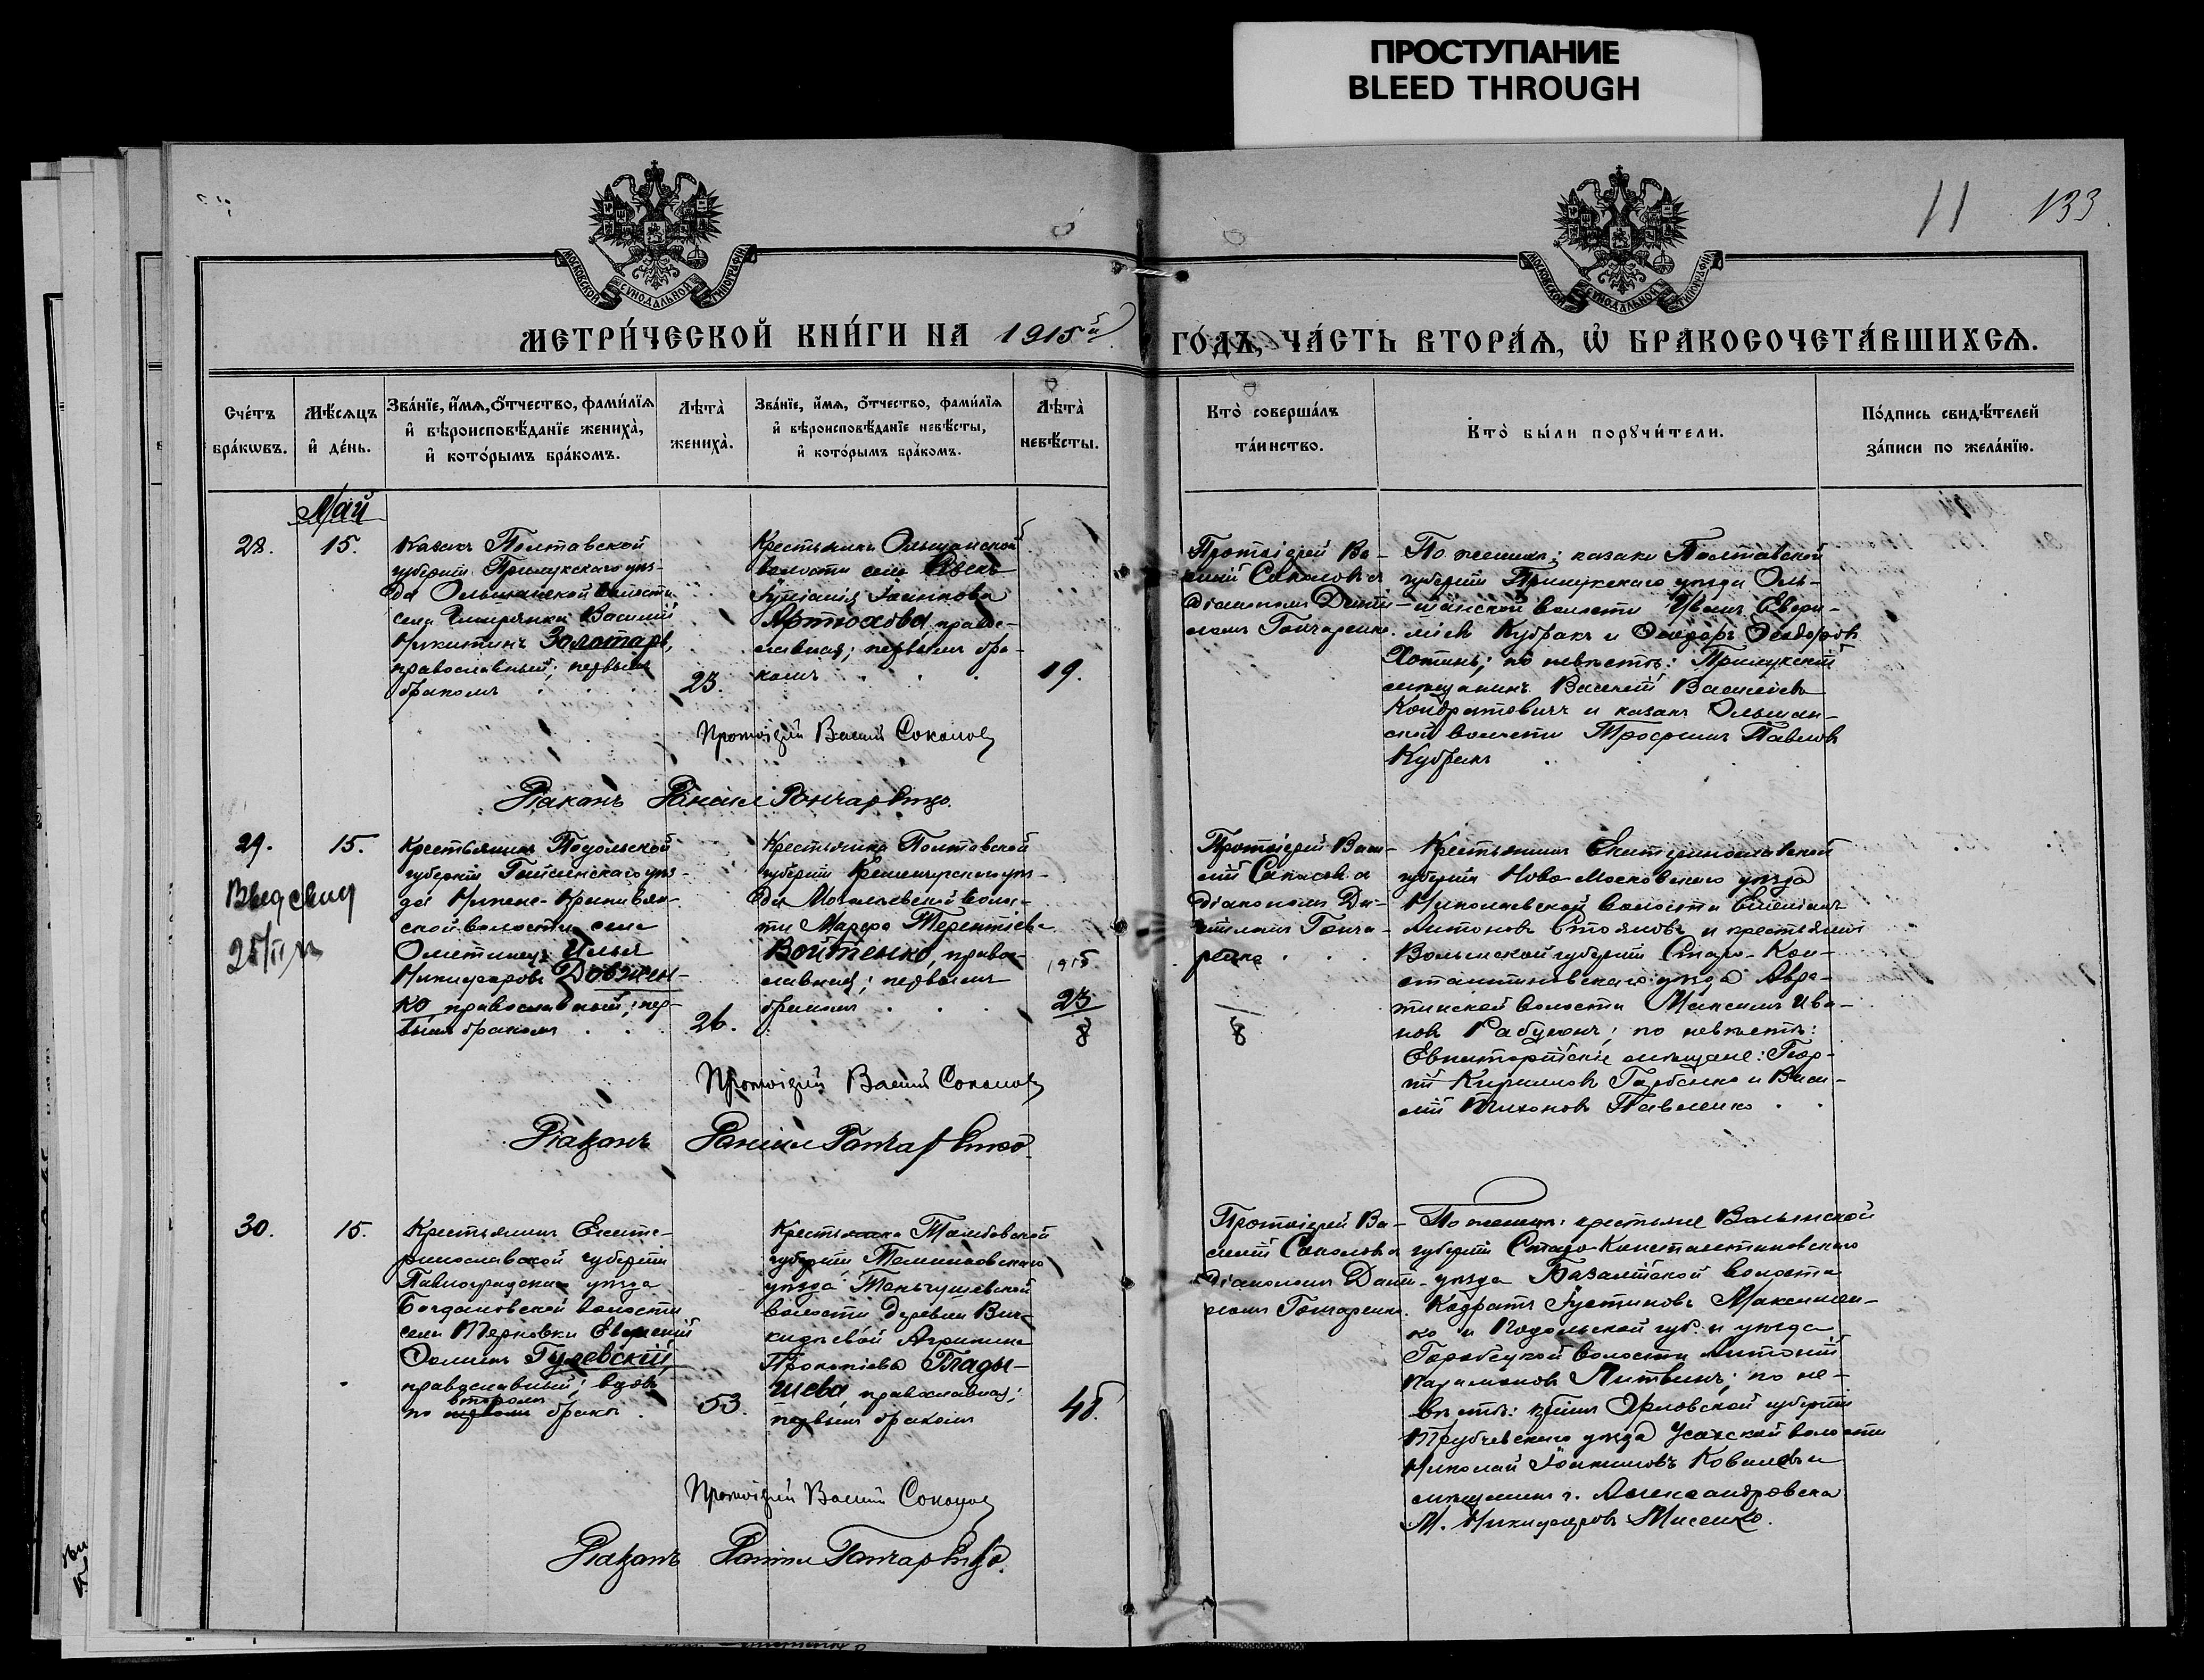 ПРОСТУПАНИЕ
BLEED THROUGH
11 133
МОСКОВСКОЙ СѴНОДАЛЬНОЙ ТИПОГРАФІИ
МОСКОВСКОЙ СѴНОДАЛЬНОЙ ТИПОГРАФІИ
МЕТРИ́ЧЕСКОЙ КНИ́ГИ НА 1915й
ГО́ДЪ, ЧА́СТЬ ВТОРА́Я, Ѡ БРАКОСОЧЕТА́ВШИХСЯ.
Сче́тъ бра́кѡвъ.
Мѣ́сяцъ и҆ де́нь.
Зва́нїе, и҆́мя, ѻ҆́тчество, фами́лїя
и҆ вѣроисповѣ́данїе жениха̀,
и҆ кото́рымъ бра́комъ.
Лѣта̀ жениха̀.
Зва́нїе, и҆́мя, ѻ҆́тчество, фами́лїя
и҆ вѣроисповѣ́данїе невѣ́сты,
и҆ кото́рымъ бра́комъ.
Лѣта̀ невѣ́сты.
Кто̀ соверша́лъ
та́инство.
Кто̀ бы́ли порꙋчи́тели.
По́дпись свидѣ́телей
за́писи по жела́нїю.
Май
28.
15.
Казакъ Полтавской
губерніи Прилукскаго уѣз-
да Ольшанской волости
села Василій
Никитинъ Золотарь,
православный; первымъ
бракомъ
23.
Крестьянка Ольшанской
волости села
Іуліанія
Артюхова, право-
славная; первымъ бра-
комъ
19.
Протоіерей Ва-
силій Соколовъ съ
діакономъ Дані-
иломъ Гончаренко.
По женихѣ: казаки Полтавской
губерніи Прилукскаго уѣзда Оль-
шанской волости Иванъ
Кубракъ и Ѳеодоръ Ѳеодоровъ
Хотинъ; по невѣстѣ: Прилукскій
мѣщанинъ Василій Васильевъ
Кондратовичъ и казакъ Ольшан-
ской волости Трофимъ Павловъ
Кубракъ
Протоіерей Василій Соколовъ
Діаконъ Даніилъ Гончаренко.
29.
15.
Выд свид
25/II
Крестьянинъ Подольской
губерніи Гайсинскаго уѣз-
да Нижне-Крапивян-
ской волости села
Ометинецъ Илья
Никифоровъ Довжен-
ко православный; пер-
вымъ бракомъ
26.
Крестьянка Полтавской
губерніи Кременчугскаго уѣз-
да волос-
ти Марфа Терентіева
Войтенко, право-
славная; первымъ
бракомъ
1915
23
8
Протоіерей Васи-
лій Соколовъ съ
діакономъ Да-
ніиломъ Гонча-
ренко
8
Крестьянинъ Екатеринославской
губерніи Ново-Московскаго уѣзда
Николаевской волости
Антоновъ Стояновъ и крестьянинъ
Волынской губерніи Старо-Кон-
стантиновскаго уѣзда
волости Максимъ Ива-
новъ ; по невѣстѣ:
Евпаторійскіе мѣщане: Геор-
гій Кирилловъ Горбенко и Васи-
лій Тихоновъ Павленко
Протоіерей Василій Соколовъ
Діаконъ Даніилъ Гончаренко
30.
15.
Крестьянинъ Екате-
ринославской губерніи
Павлоградскаго уѣзда
Богдановской волости
села Терновки Евгеній
Гулевскій,
православный; вдовъ
вторымъ
по первомъ бракѣ
53.
Крестьянка Тамбовской
губерніи Темниковскаго
уѣзда Теньгушевской
волости деревни
Агрипина
Прокопіева Глады-
шева, православная;
первымъ бракомъ
48.
Протоіерей Ва-
силій Соколовъ съ
діакономъ Дані-
иломъ Гончаренко.
По женихѣ: крестьяне Волынской
губерніи Старо-Константиновскаго
уѣзда Базалійской волости
Кодратъ Іустиновъ Максимен-
ко и Подольской губ. и уѣзда
волости Антоній
Литвинъ; по не-
вѣстѣ: Орловской губерніи
Трубчевскаго уѣзда волости
Николай Іоакимовъ Ковалевъ и
мѣщанинъ г. Александровска
М. Никифоровъ Мисенко.
Протоіерей Василій Соколовъ
Діаконъ Даніилъ Гончаренко.